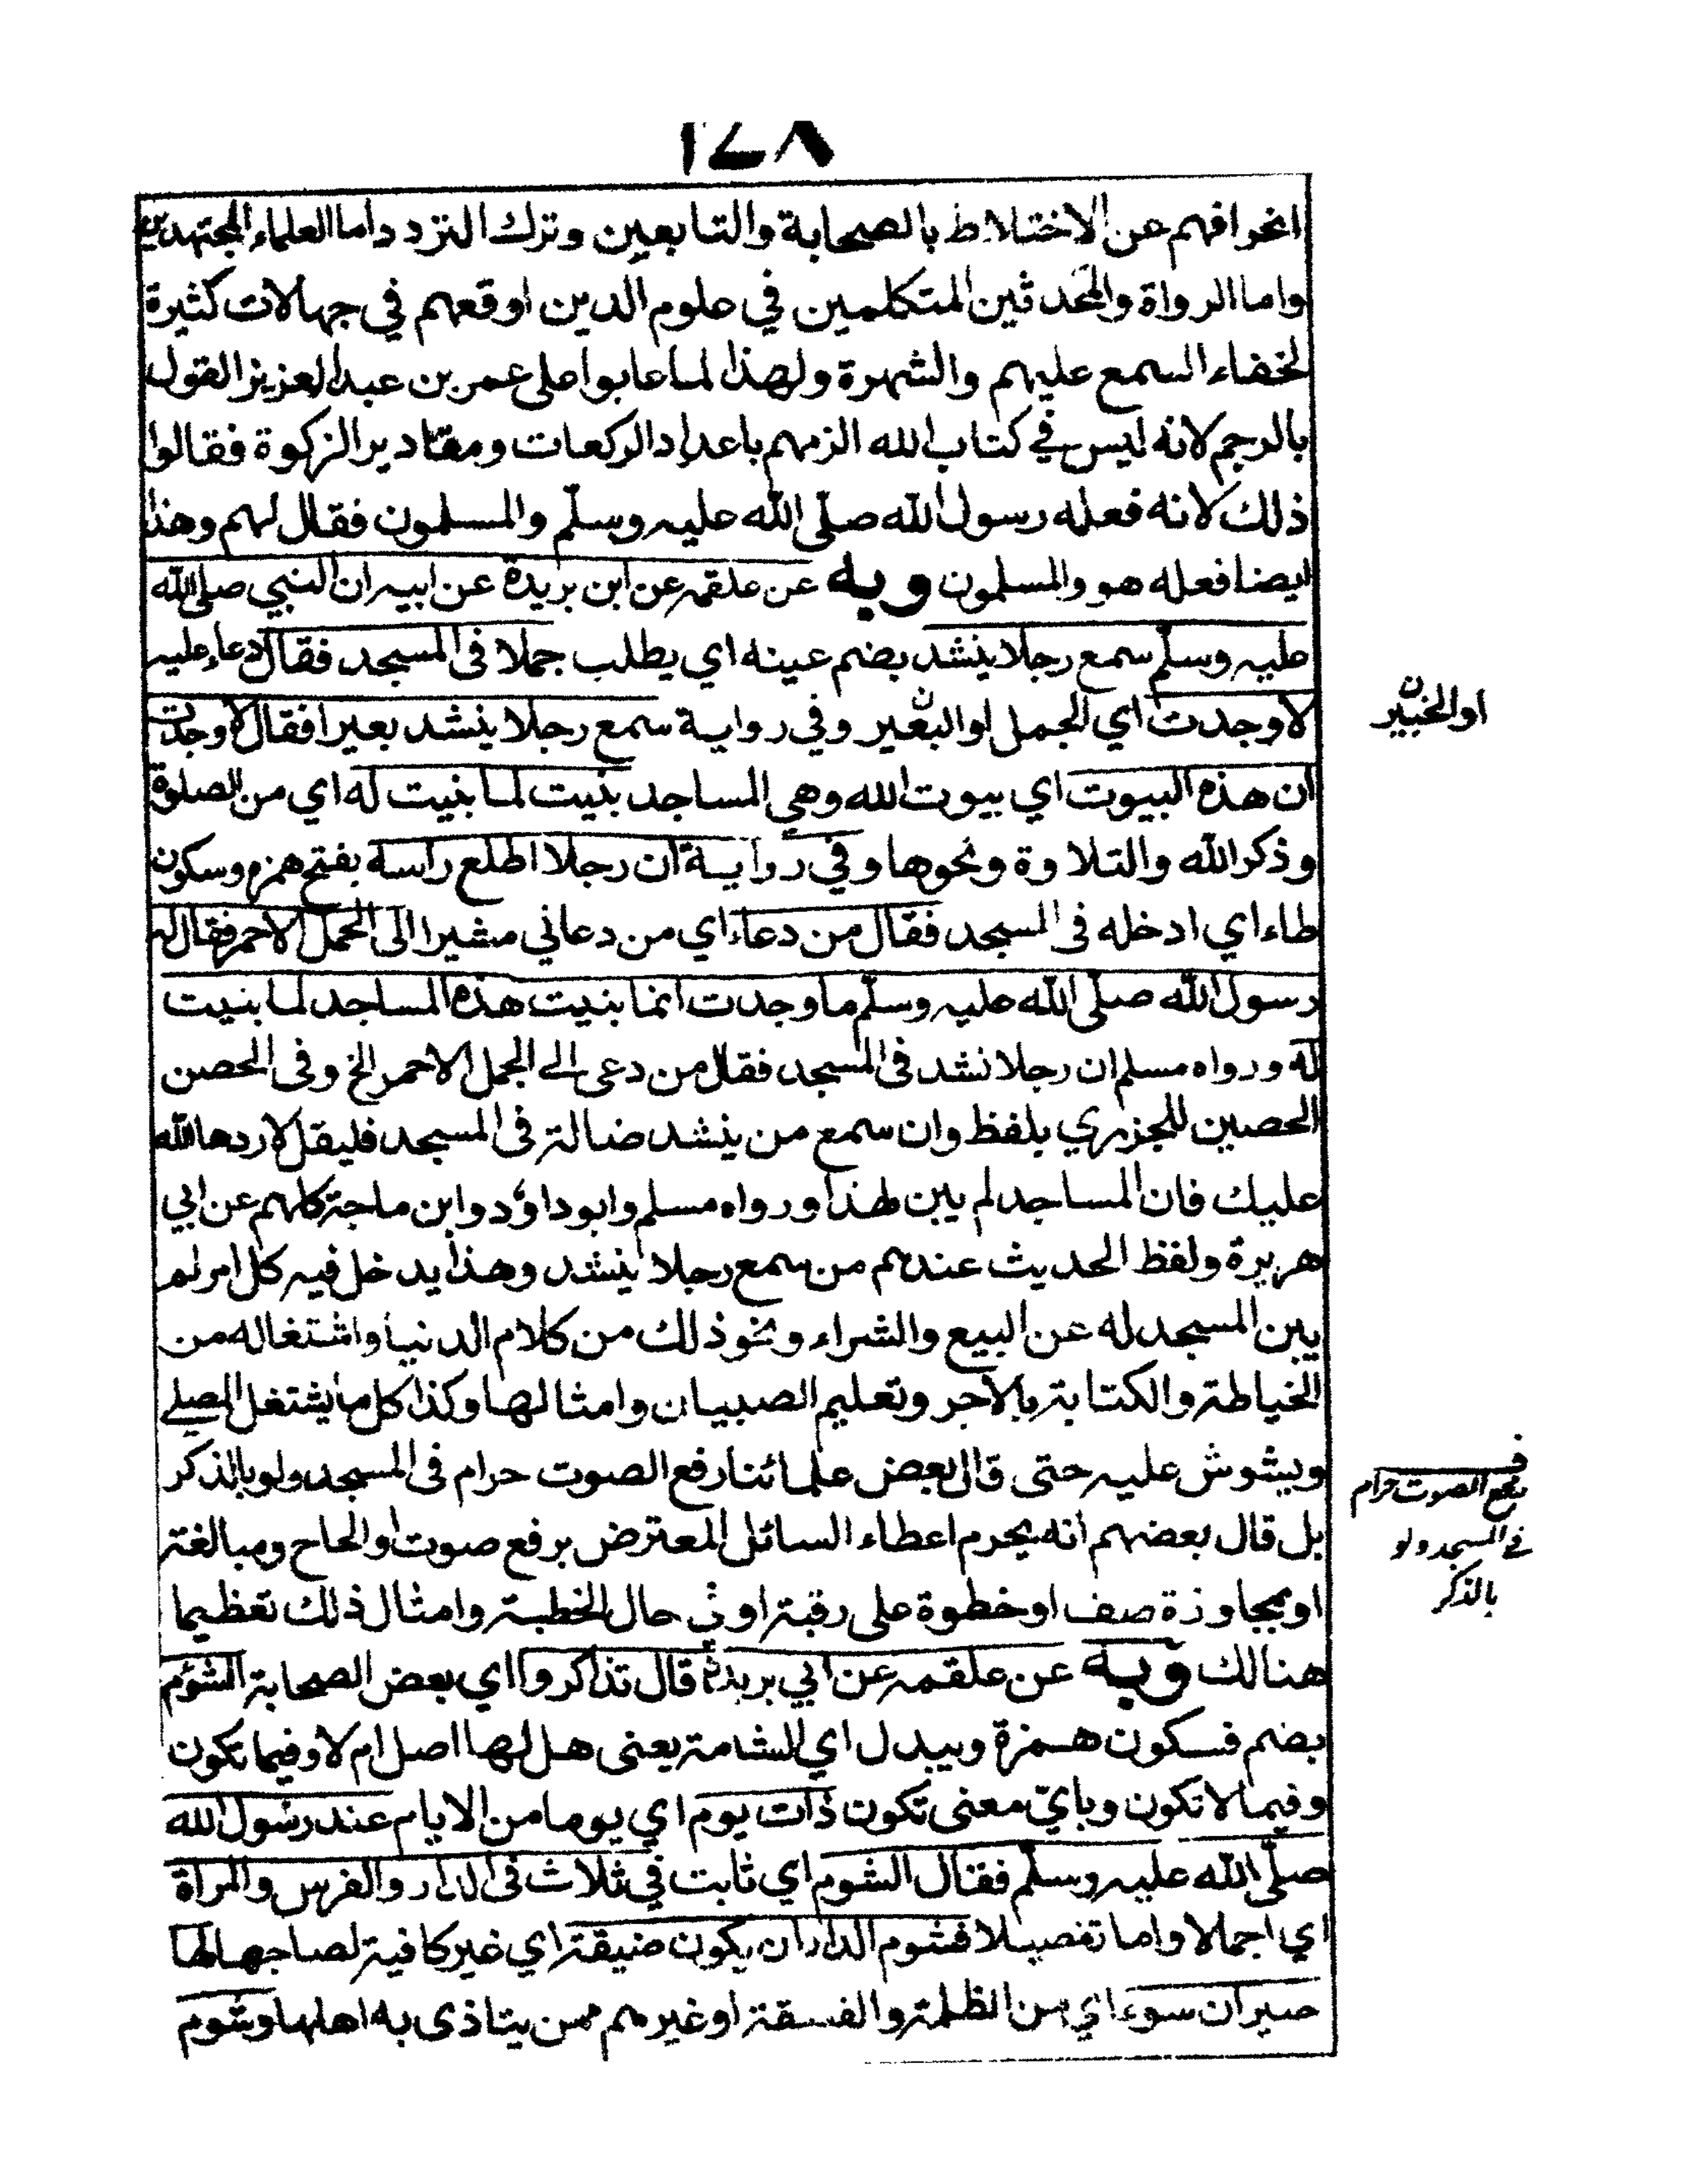 ١٤٨
انحرافهم عن الاختلاط بالصحابة والتابعين وترك التردد داما العلماء المجتهدين
واما الرواة والمحدثين المتكلمين في علوم الدين اوقعهم في جهالات كثيرة
لخفاء السمع عليهم والشهرة ولهذا لما عابوا على عمر بن عبد العزيز القول
بالرجم لانه ليس في كتاب الله الزمهم باعداد الركعات ومقادير الزكوة فقالوا
ذلك لانه فعله رسول الله صلى الله عليه وسلم والمسلمون فقال لهم وهذا
ايضا فعله هو والمسلمون وبه عن علقمه عن ابن بريدة عن ابيه ان النبي صلى الله
عليه وسلم سمع رجلا ينشد بضم عينه اي يطلب جملا فى المسجد فقال دعاء عليه
لا وجدت اي الجمل او البعير وفي رواية سمع رجلا ينشد بعيرا فقال لا وجدت
ان هذه البيوت اي بيوت الله وهي المساجد بنيت لما بنيت له اي من الصلوة
وذكر الله والتلاوة ونحوها وفي رواية ان رجلا اطلع راسه بفتح همزه وسكون
طاء اي ادخله فى المسجد فقال من دعاء اي من دعاني مشيرا الى الجمل الاحمر فقال له
رسول الله صلى الله عليه وسلم ما وجدت انما بنيت هذه المساجد لما بنيت
له ورواه مسلم ان رجلا نشد فى المسجد فقال من دعى الے الجمل الاحمر الخ وفى الحصن
الحصين للجزري بلفظ وان سمع من ينشد ضالة فى المسجد فليقل لا ردها الله
عليك فان المساجد لم يبن لهذا ورواه مسلم وابو داؤد وابن ماجة كلهم عن ابي
هريرة ولفظ الحديث عندهم من سمع رجلا ينشد وهذا يدخل فيه كل امر لم
يبن المسجد له عن البيع والشراء ونحو ذلك من كلام الدنيا واشتغاله من
الخياطة والكتابة بالاجر وتعليم الصبيان وامثالها وكذا كل ما يشتغل المصلے
ويشوش عليه حتى قال بعض علمائنا رفع الصوت حرام فى المسجد ولو بالذكر
بل قال بعضهم انه يحرم اعطاء السائل المعترض برفع صوت او الحاح ومبالغة
او بمجاوزة صف او خطوة على رقبة او في حال الخطبة وامثال ذلك تعظيما
هنالك وبه عن علقمه عن ابي بريدة قال تذاكروا اي بعض الصحابة الشؤم
بضم فسكون همزة ويبدل اي للشامة يعنى هل لها اصل ام لا وفيما تكون
وفيما لا تكون وباي معنى تكون ذات يوم اي يوما من الايام عند رسول الله
صلى الله عليه وسلم فقال الشوم اي ثابت في ثلاث فى الدار والفرس والمراة
اي اجمالا واما تفصيلا فشوم الدار ان يكون ضيقة اي غير كافية لصاحبها لها
جيران سوء اي من الظلمة والفسقة او غيرهم ممن يتاذى به اهلها وشوم
او الخبير
ن
ف
رفع الصوت حرام
فے المسجد ولو
بالذكر